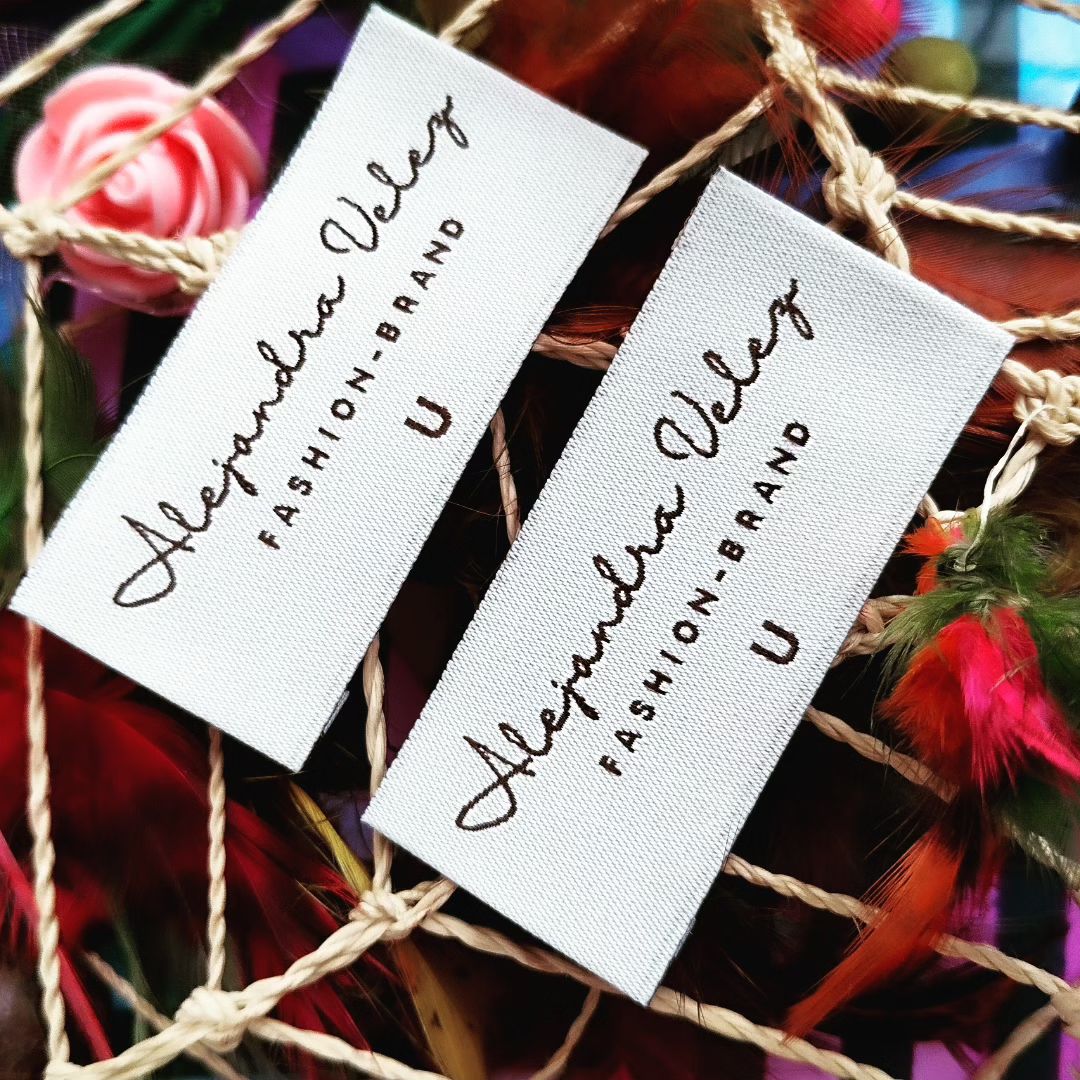 Alejandra Velez
FASHION-BRAND
U
Alejandra Velez
FASHION-BRAND
U